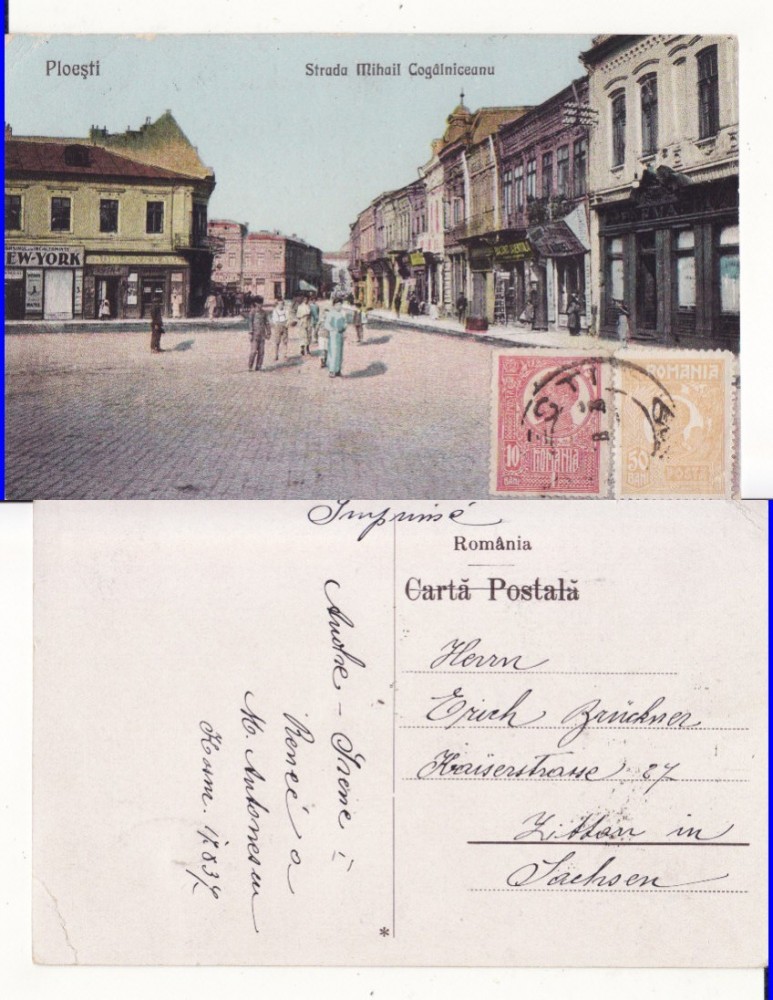 Ploești
Strada Mihail Cogâlniceanu
EW-YORK
10
ROMANIA
BANI
ROMANIA
50
BANI
POSTA
Imprimé
România
Cartă Postală
Herrn
Erich Brückner
Kaiserstrasse 27
Zittau in
Sachsen
Andre - Irene
Renée
M. Antonescu